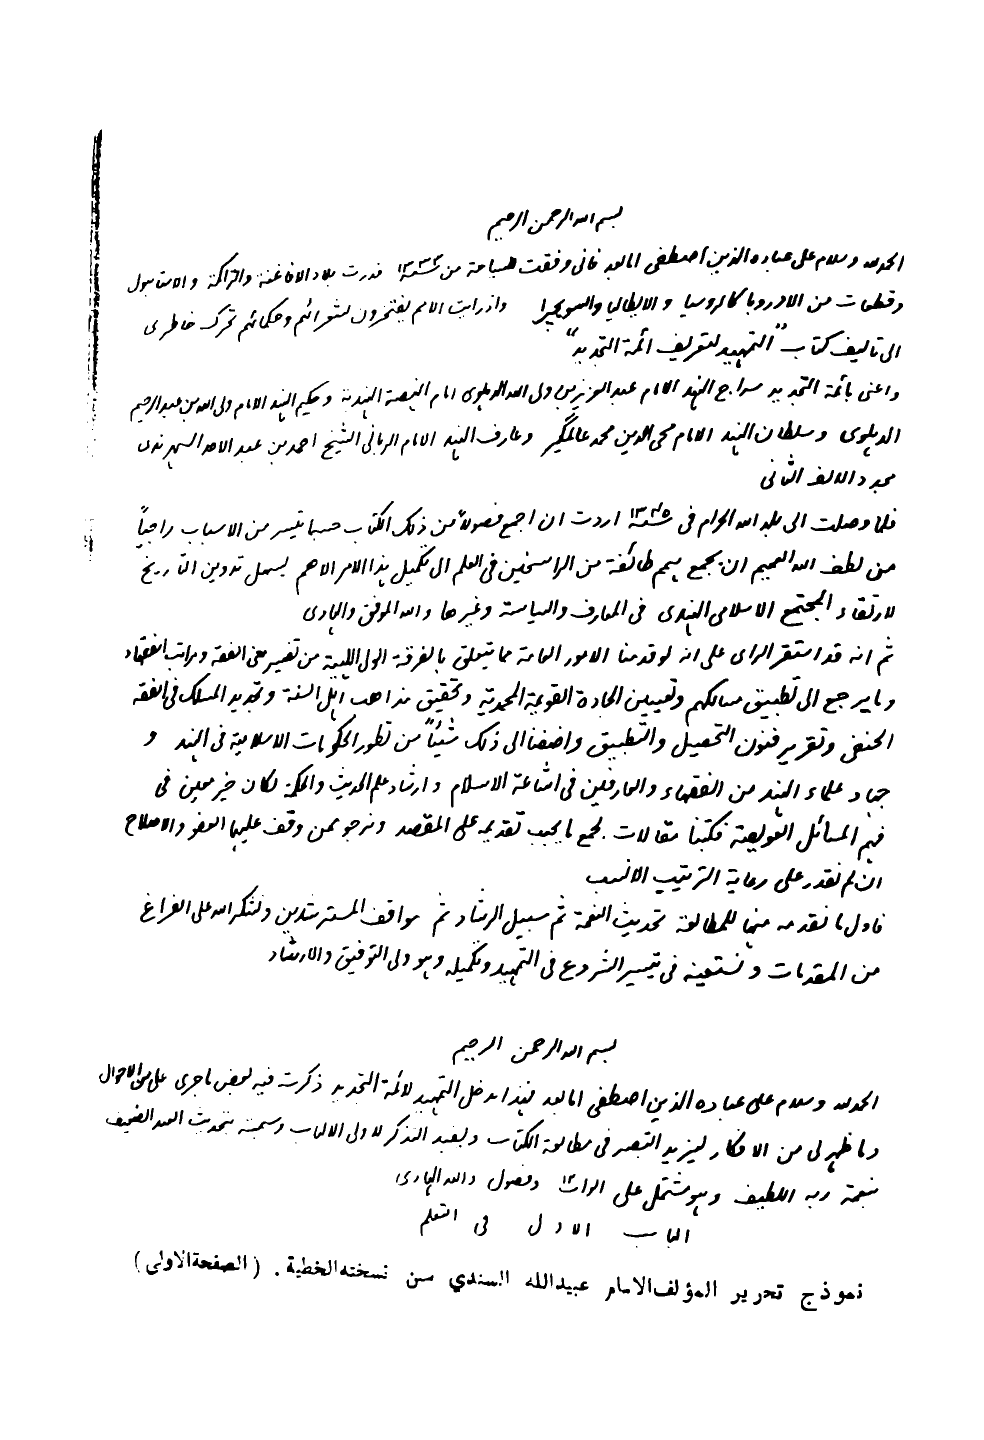 بسم الله الرحمن الرحيم
الحمد لله وسلام على عباده الذين اصطفى اما بعد فانى وفقت لسياحة من سنة ١٣٣٣ فدرت بلاد الافاغنة والتراكمة والاستامبول
وقطعات من الاوروبا كالروسيا والايطاليا والسويجرا واذ رايت الامم يفتخرون بشعرائهم وحكمائهم تحرك خاطرى
الى تاليف كتاب "التمهيد لتعريف ائمة التجديد"
واعنى بائمة التجديد سراج الهند الامام عبد العزيز بن ولى الله الدهلوى امام النهضة الهندية وحكيم الهند الامام ولى الله بن عبد الرحيم
الدهلوى وسلطان الهند الامام محى الدين محمد عالمگير وعارف الهند الامام الربانى الشيخ احمد بن عبد الاحد السهرندى
مجدد الالف الثانى
فلما وصلت الى بلد الله الحرام فى سنة ١٣٤٥ اردت ان اجمع فصولاً من ذلك الكتاب حسبما تيسر من الاسباب راجياً
من لطف الله العميم ان يجمع بهم طائفة من الراسخين فى العلم الى تكميل هذا الامر الاهم يسهل تدوين التاريخ
لارتقاء المجتمع الاسلامى الهندى فى المعارف والسياسة وغيرها والله الموفق والهادى
ثم انه قد استقر الراى على انه لو قدمنا الامور العامة مما يتعلق بالفرقة الولى اللهية من تفسير معنى الفقه ومراتب الفقهاء
وما يرجع الى تطبيق مسالكهم وتعيين الجادة القويمة المحمدية وتحقيق مذاهب اهل السنة وتجديد المسلك فى الفقه
الحنفى وتقرير فنون التحصيل والتطبيق واضفنا الى ذلك شيئاً من تطور الحكومات الاسلامية فى الهند و
جهاد علماء الهند من الفقهاء والعارفين فى اشاعة الاسلام وارشاد علم الحديث والحكمة لكان خير معين فى
فهم المسائل العويصة فكتبنا مقالات لجمع ما يجب تقديمه على المقصد ونرجو ممن وقف عليها العفو والاصلاح
ان لم نقدر على رعاية الترتيب الانسب
فاول ما نقدمه منها للمطالعة تحديث النعمة ثم سبيل الرشاد ثم مواقف المسترشدين ونشكر الله على الفراغ
من المقدمات ونستعينه فى تيسير الشروع فى التمهيد وتكميله وهو ولى التوفيق والارشاد
بسم الله الرحمن الرحيم
الحمد لله وسلام على عباده الذين اصطفى اما بعد فهذا مدخل التمهيد لائمة التجديد ذكرت فيه بعض ما جرى على من الاحوال
وما ظهر لى من الافكار ليزيد التبصر فى مطالعة الكتاب ويفيد التذكر لاولى الالباب وسميته بتحديث العبد الضعيف
بنعمة ربه اللطيف وهو مشتمل على ابواب وفصول والله الهادى
الباب الاول فى التعلم
نموذج تحرير المؤلف الامام عبيدالله السندي من نسخته الخطية . (الصفحة الاولى)